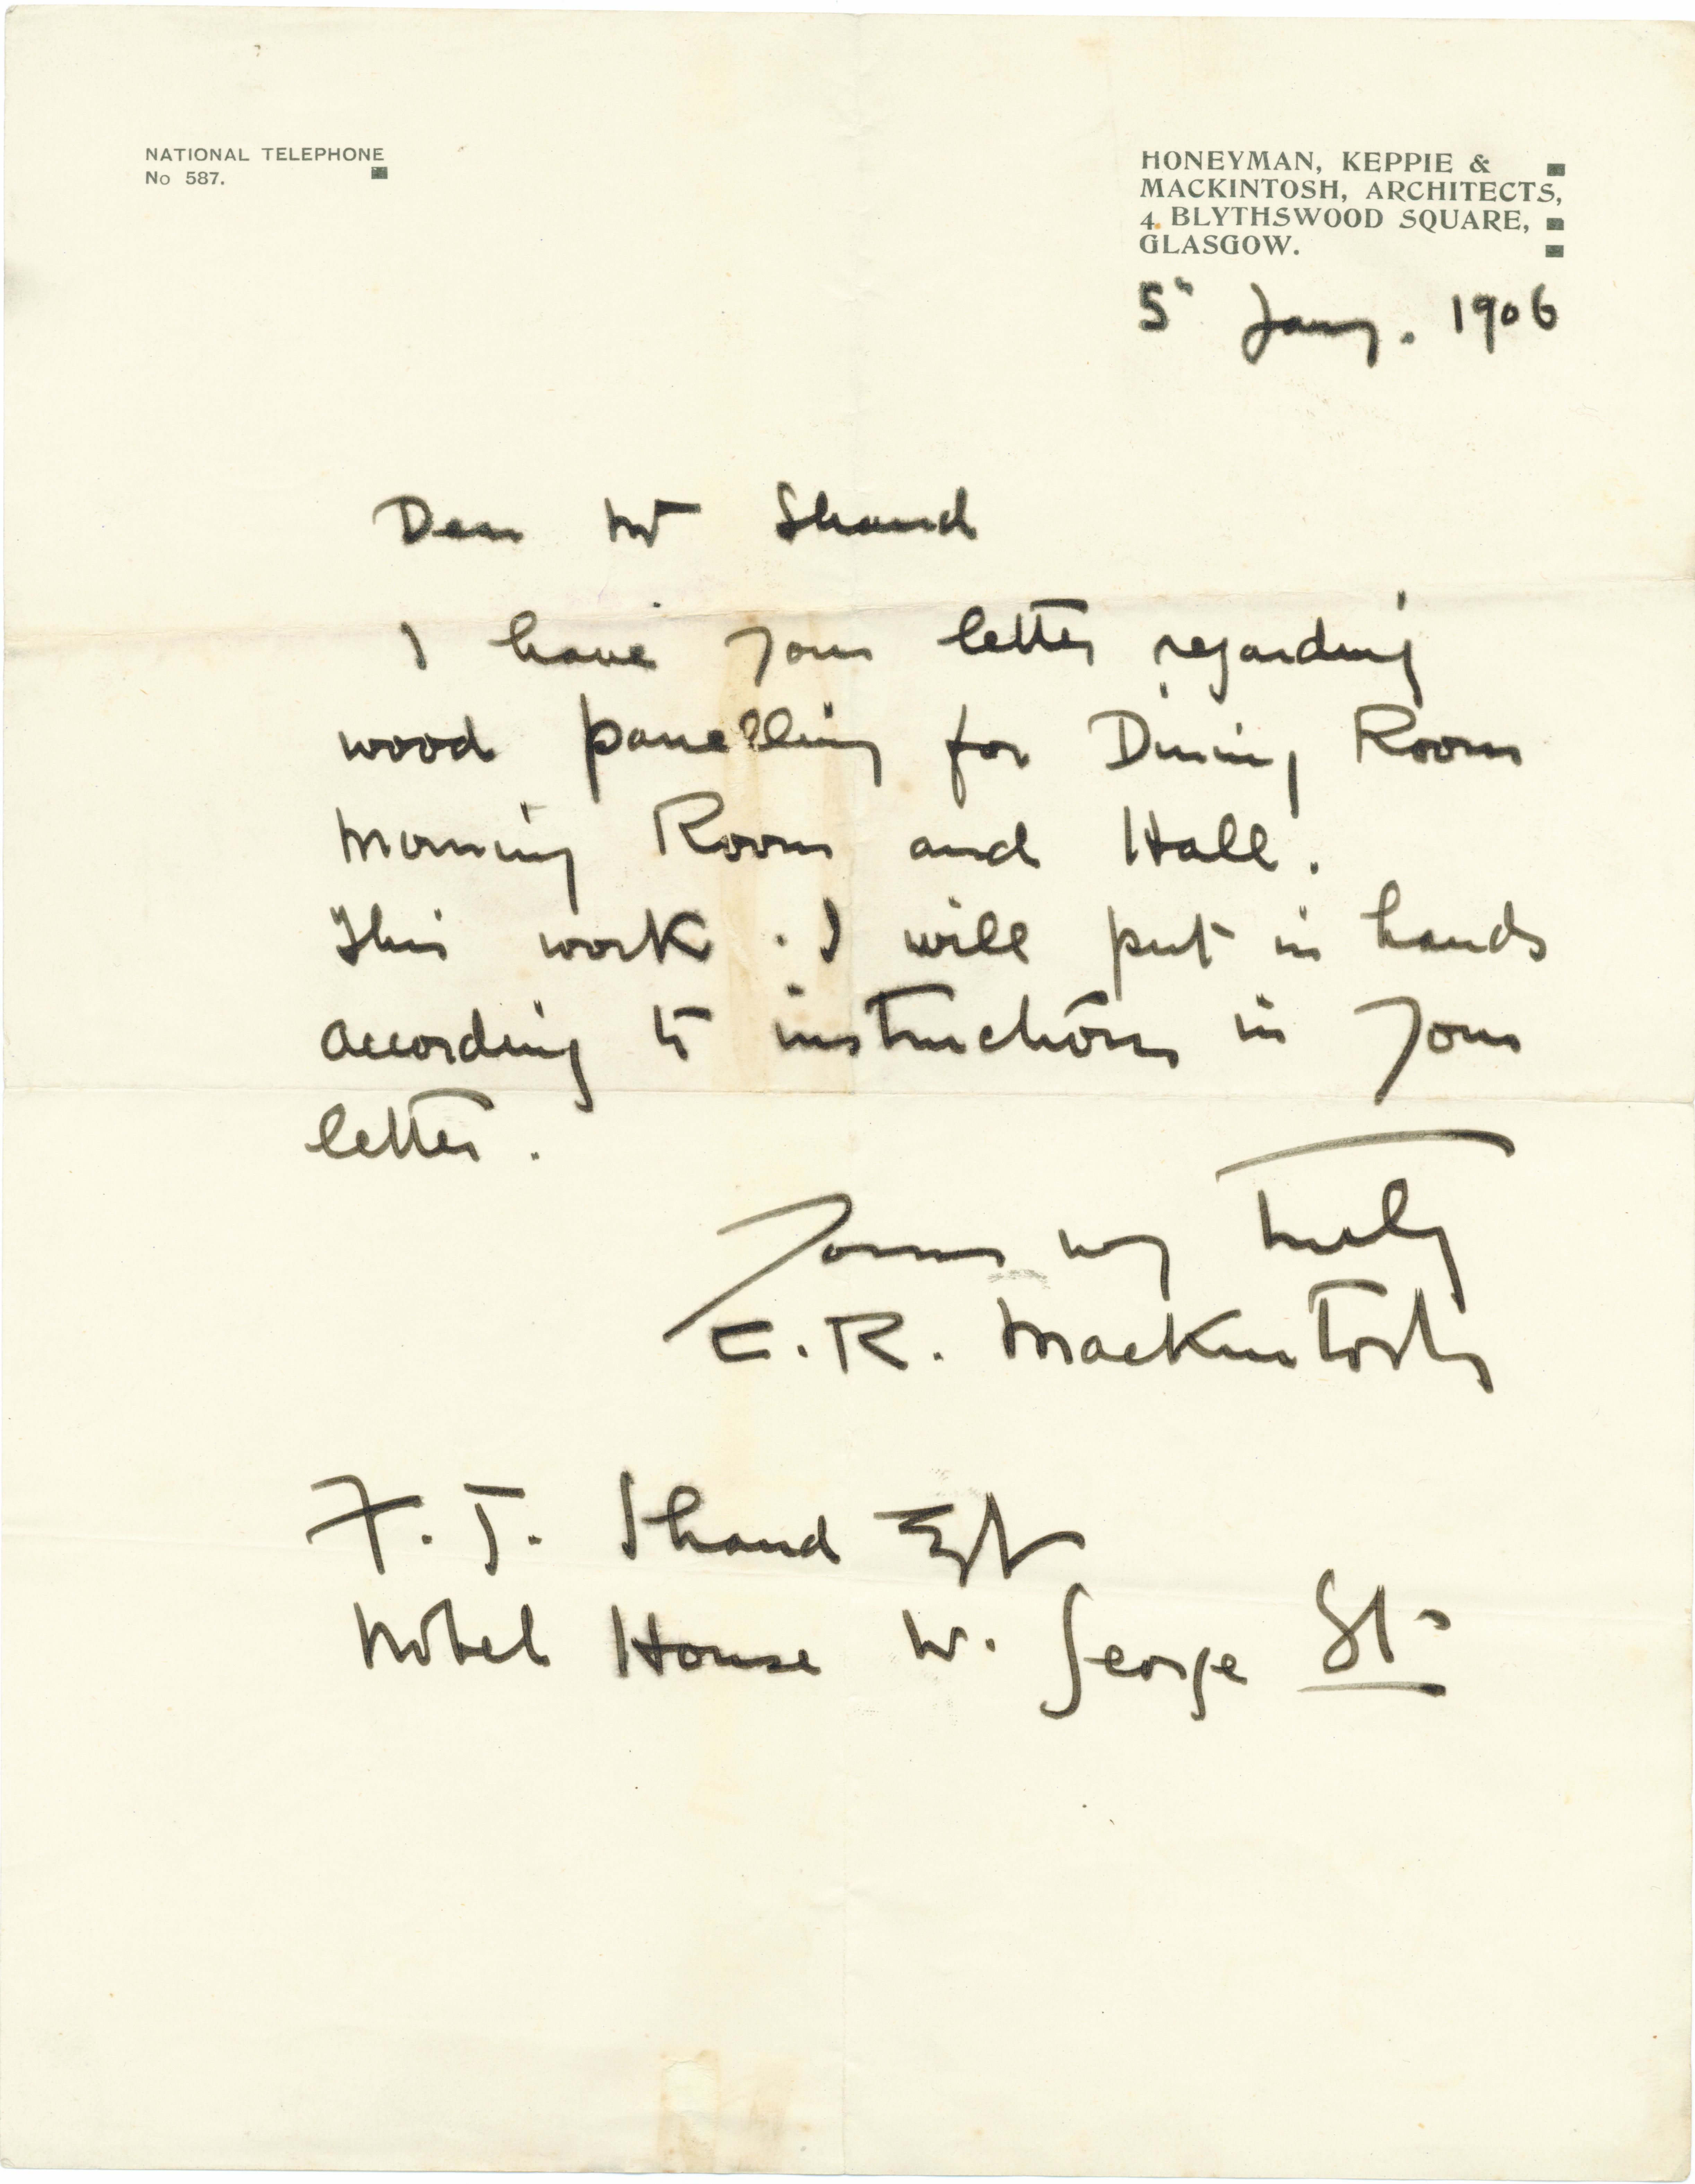 NATIONAL TELEPHONE
No 587.
HONEYMAN, KEPPIE &
MACKINTOSH, ARCHITECTS,
4 BLYTHSWOOD SQUARE,
GLASGOW.
5th Jany. 1906
Dear Mr Shand
I have your letter regarding
wood panelling for Dining Room
Morning Room and Hall.
This work . I will put in hands
according to instructions in your
letter.
Yours very truly
C. R. Mackintosh
F. J. Shand Esqr
Nobel House W. George St.